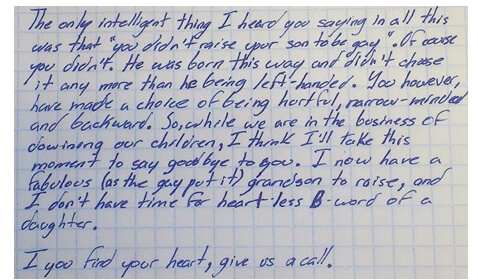 The only intelligent thing I heard you saying in all this
was that "you didn't raise your son to be gay". Of couse
you didn't. He was born this way and didn't choose
it any more than he being left-handed. You however,
have made a choice of being hortful, narrow-minded
and backward. So, while we are in the business of
dowining our children, I think I'll take this
moment to say goodbye to you. I now have a
fabulous (as the gay put it) grandson to raise, and
I don't have time for heartiless B-word of a
daughter.
I you find your heart, give us a call.